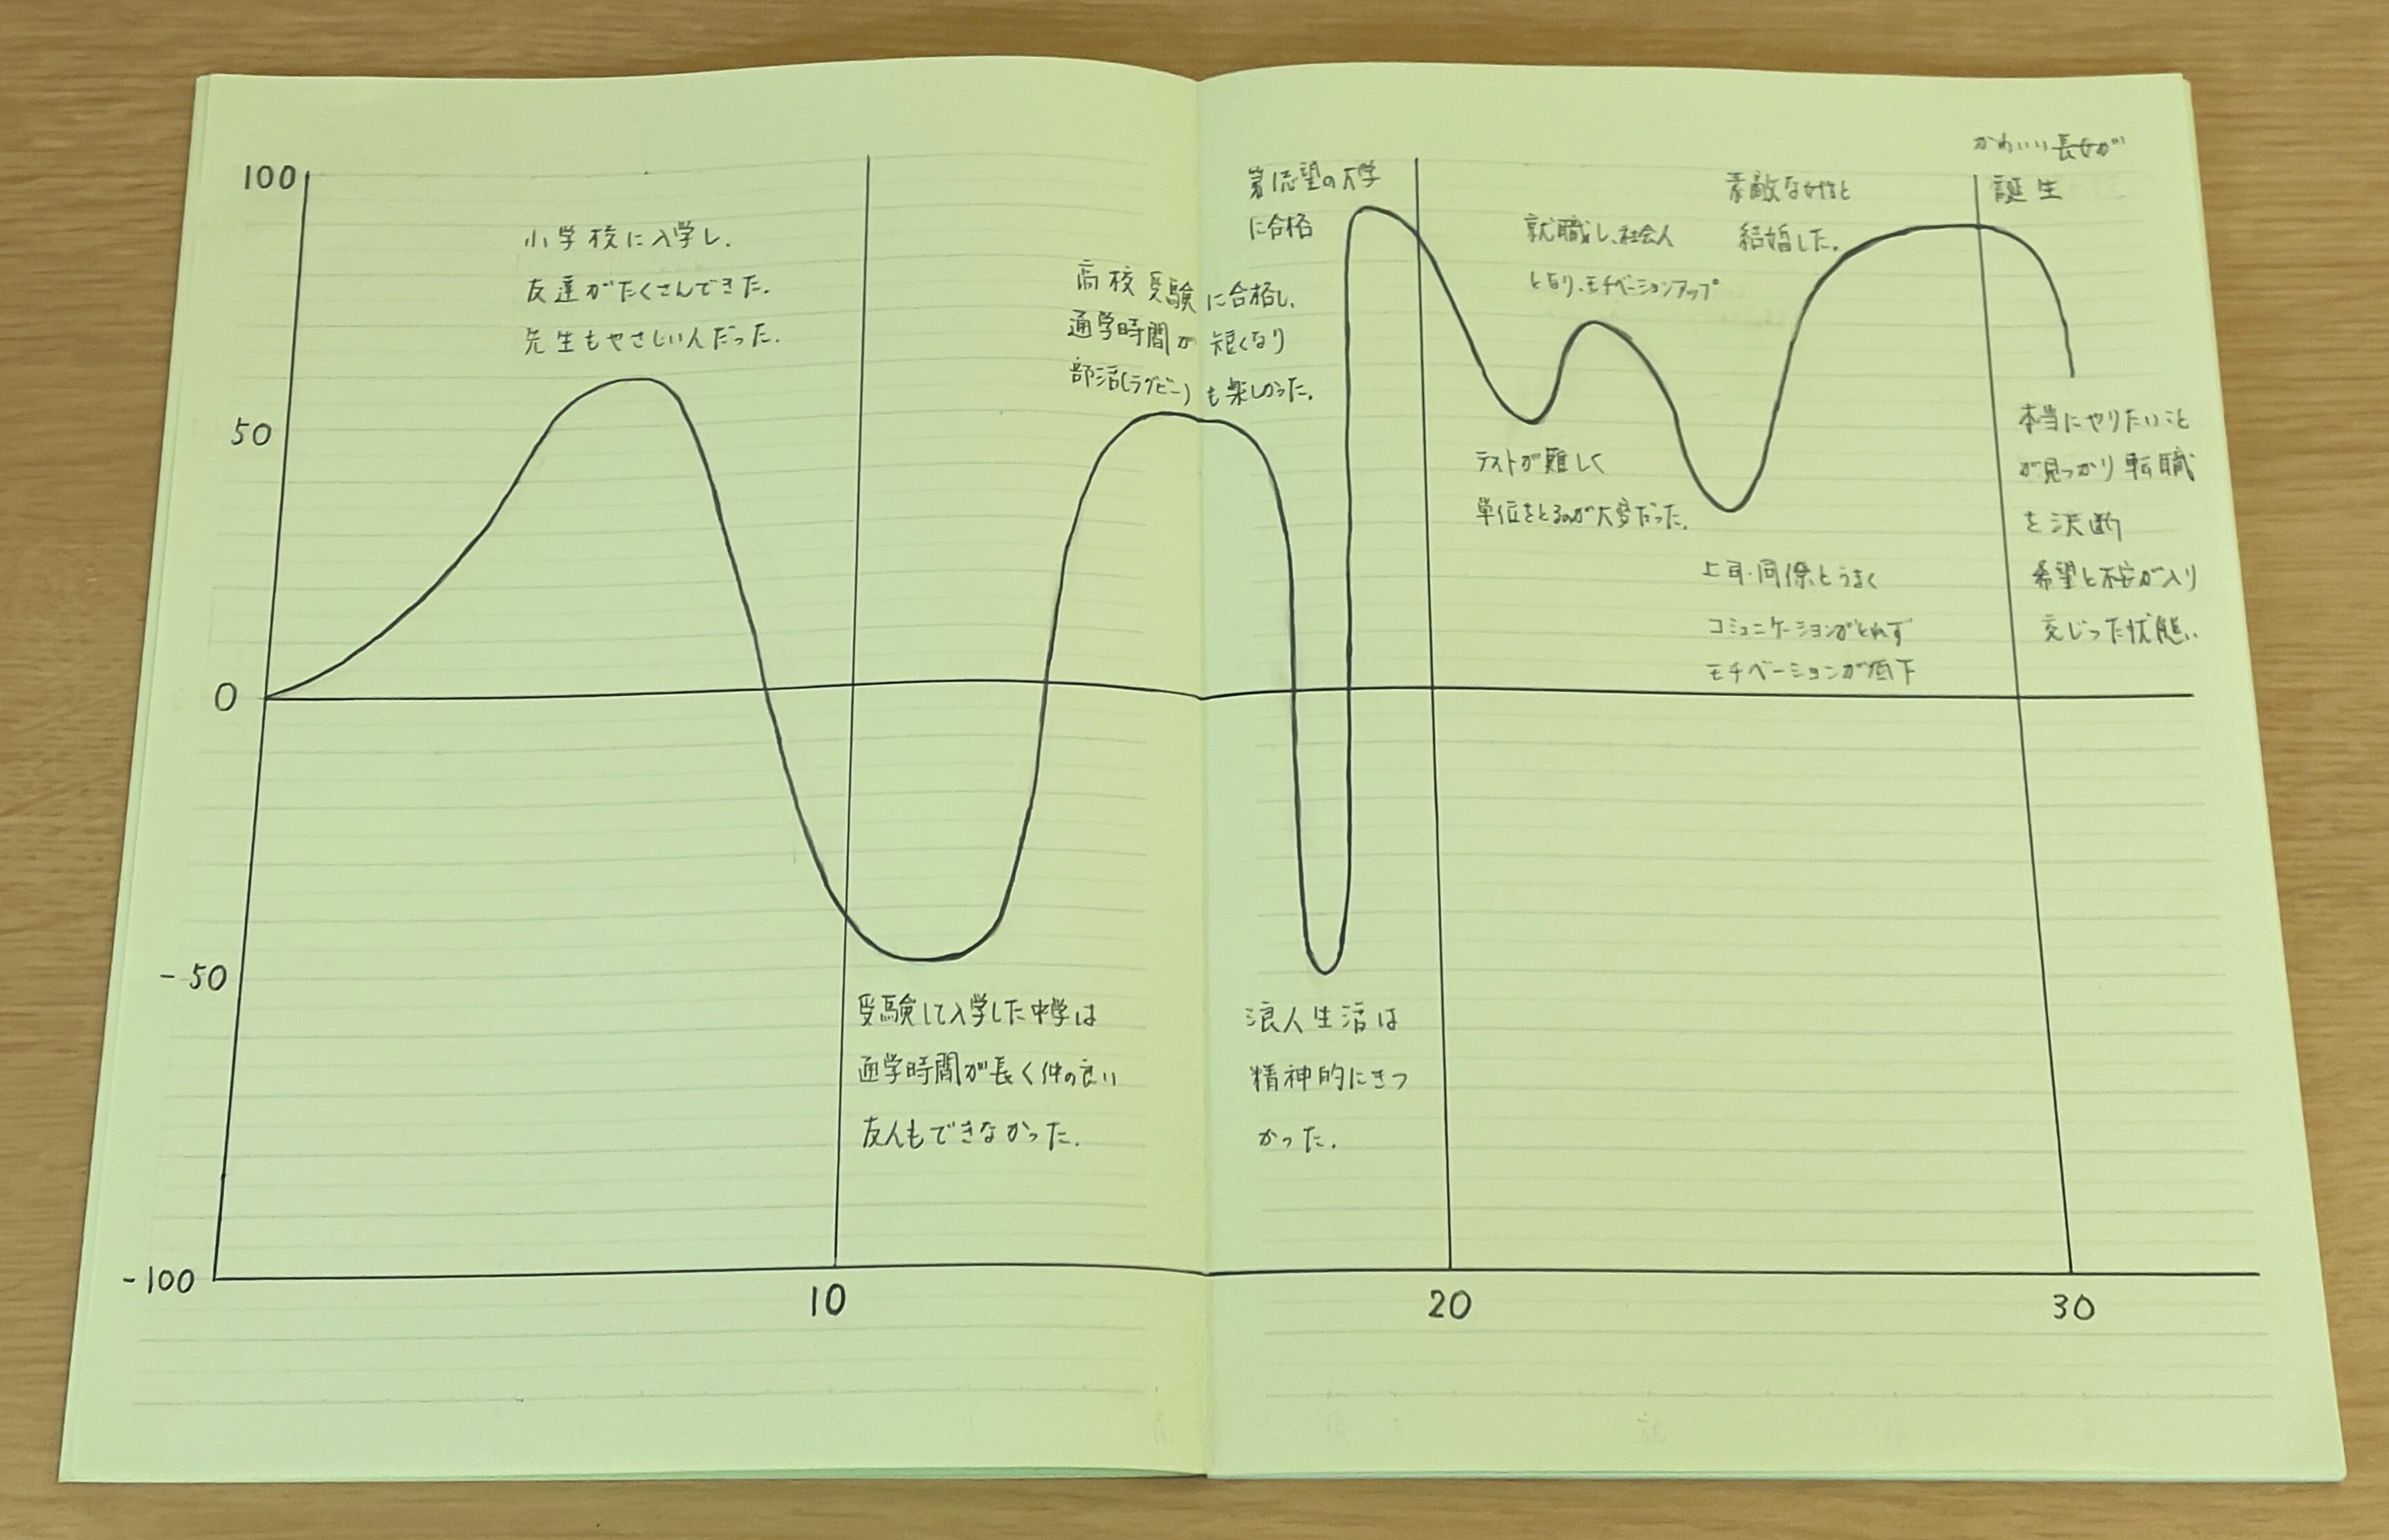 100
50
0
-50
-100
10
20
30
小学校に入学し、
友達がたくさんできた。
先生もやさしい人だった。
受験して入学した中学は
通学時間が長く仲の良い
友人もできなかった。
高校受験に合格し、
通学時間が短くなり
部活(ラグビー)も楽しかった。
浪人生活は
精神的にきつ
かった。
第1志望の大学
に合格
テストが難しく
単位をとるのが大変だった。
就職し、社会人
となり、モチベーションアップ
上司・同僚とうまく
コミュニケーションがとれず
モチベーションが低下
素敵な女性と
結婚した。
かわいい長女が
誕生
本当にやりたいこと
が見つかり転職
を決断
希望と不安が入り
交じった状態。